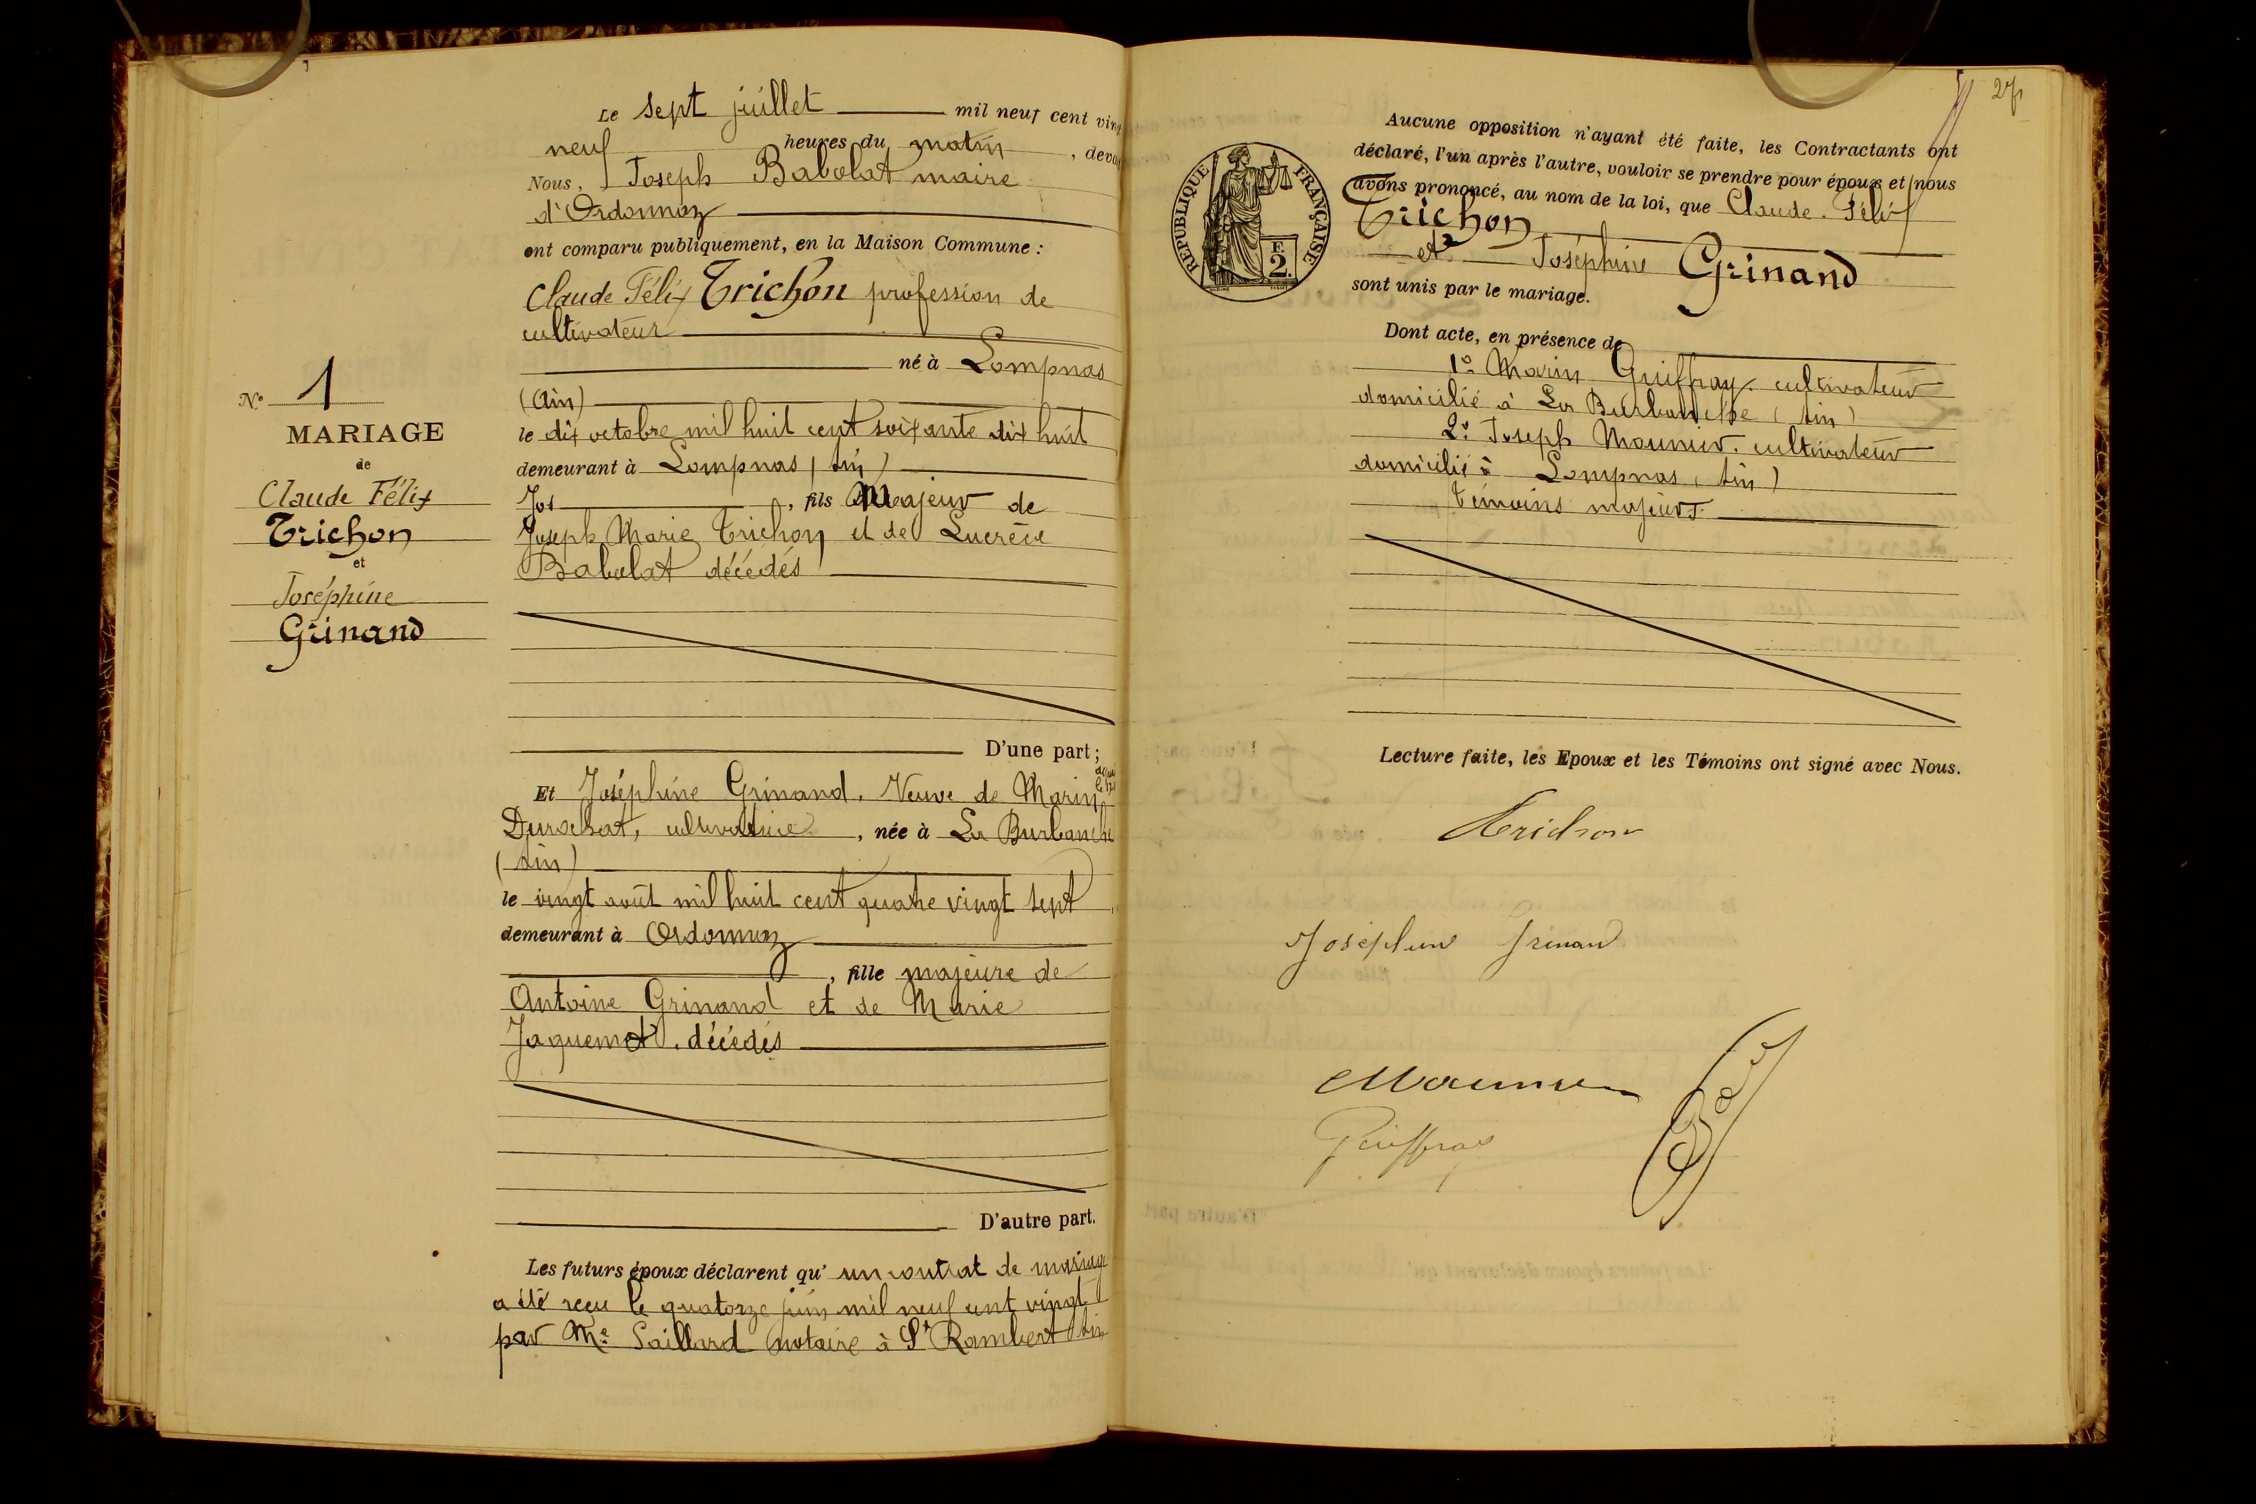 Le sept juillet mil neuf cent vin
neuf heures du matin, deva
Nous, Joseph Babolat maire
d'Ordonnaz
ont comparu publiquement, en la Maison Commune :
Claude Félix Trichon profession de
cultivateur
né à Lompnas
(Ain)
le dix octobre mil huit cent soixante dix huit
demeurant à Lompnas (Ain)
Jos , fils Majeur de
Joseph Marie Trichon et de Lucrèce
Babolat décédés
D'une part ;
Et Joséphine Grinand. Veuve de Marin
Durochat, cultivatrice, née à La Burbanche
(Ain)
le vingt août mil huit cent quatre vingt sept
demeurant à Ordonnaz
, fille majeure de
Antoine Grinand et de Marie
Jaquemet. décédés
D'autre part.
Les futurs époux déclarent qu' un contrat de mariage
a été reçu le quatorze juin mil neuf cent vingt
par Me Saillard notaire à St Rambert Ain
No 1
MARIAGE
de
Claude Félix
Trichon
et
Joséphine
Grinand
27
RÉPUBLIQUE FRANÇAISE
F.
2.
Aucune opposition n'ayant été faite, les Contractants ont
déclaré, l'un après l'autre, vouloir se prendre pour époux et nous
avons prononcé, au nom de la loi, que Claude. Félix
Trichon
et Joséphine Grinand
sont unis par le mariage.
Dont acte, en présence de
1º Marin Guiffray. cultivateur
domicilié à La Burbanche (Ain)
2º Joseph Mounier. cultivateur
domicilié à Lompnas (Ain)
témoins majeurs
Lecture faite, les Epoux et les Témoins ont signé avec Nous.
Trichon
Joséphine Grinand
Mounier
Guiffray